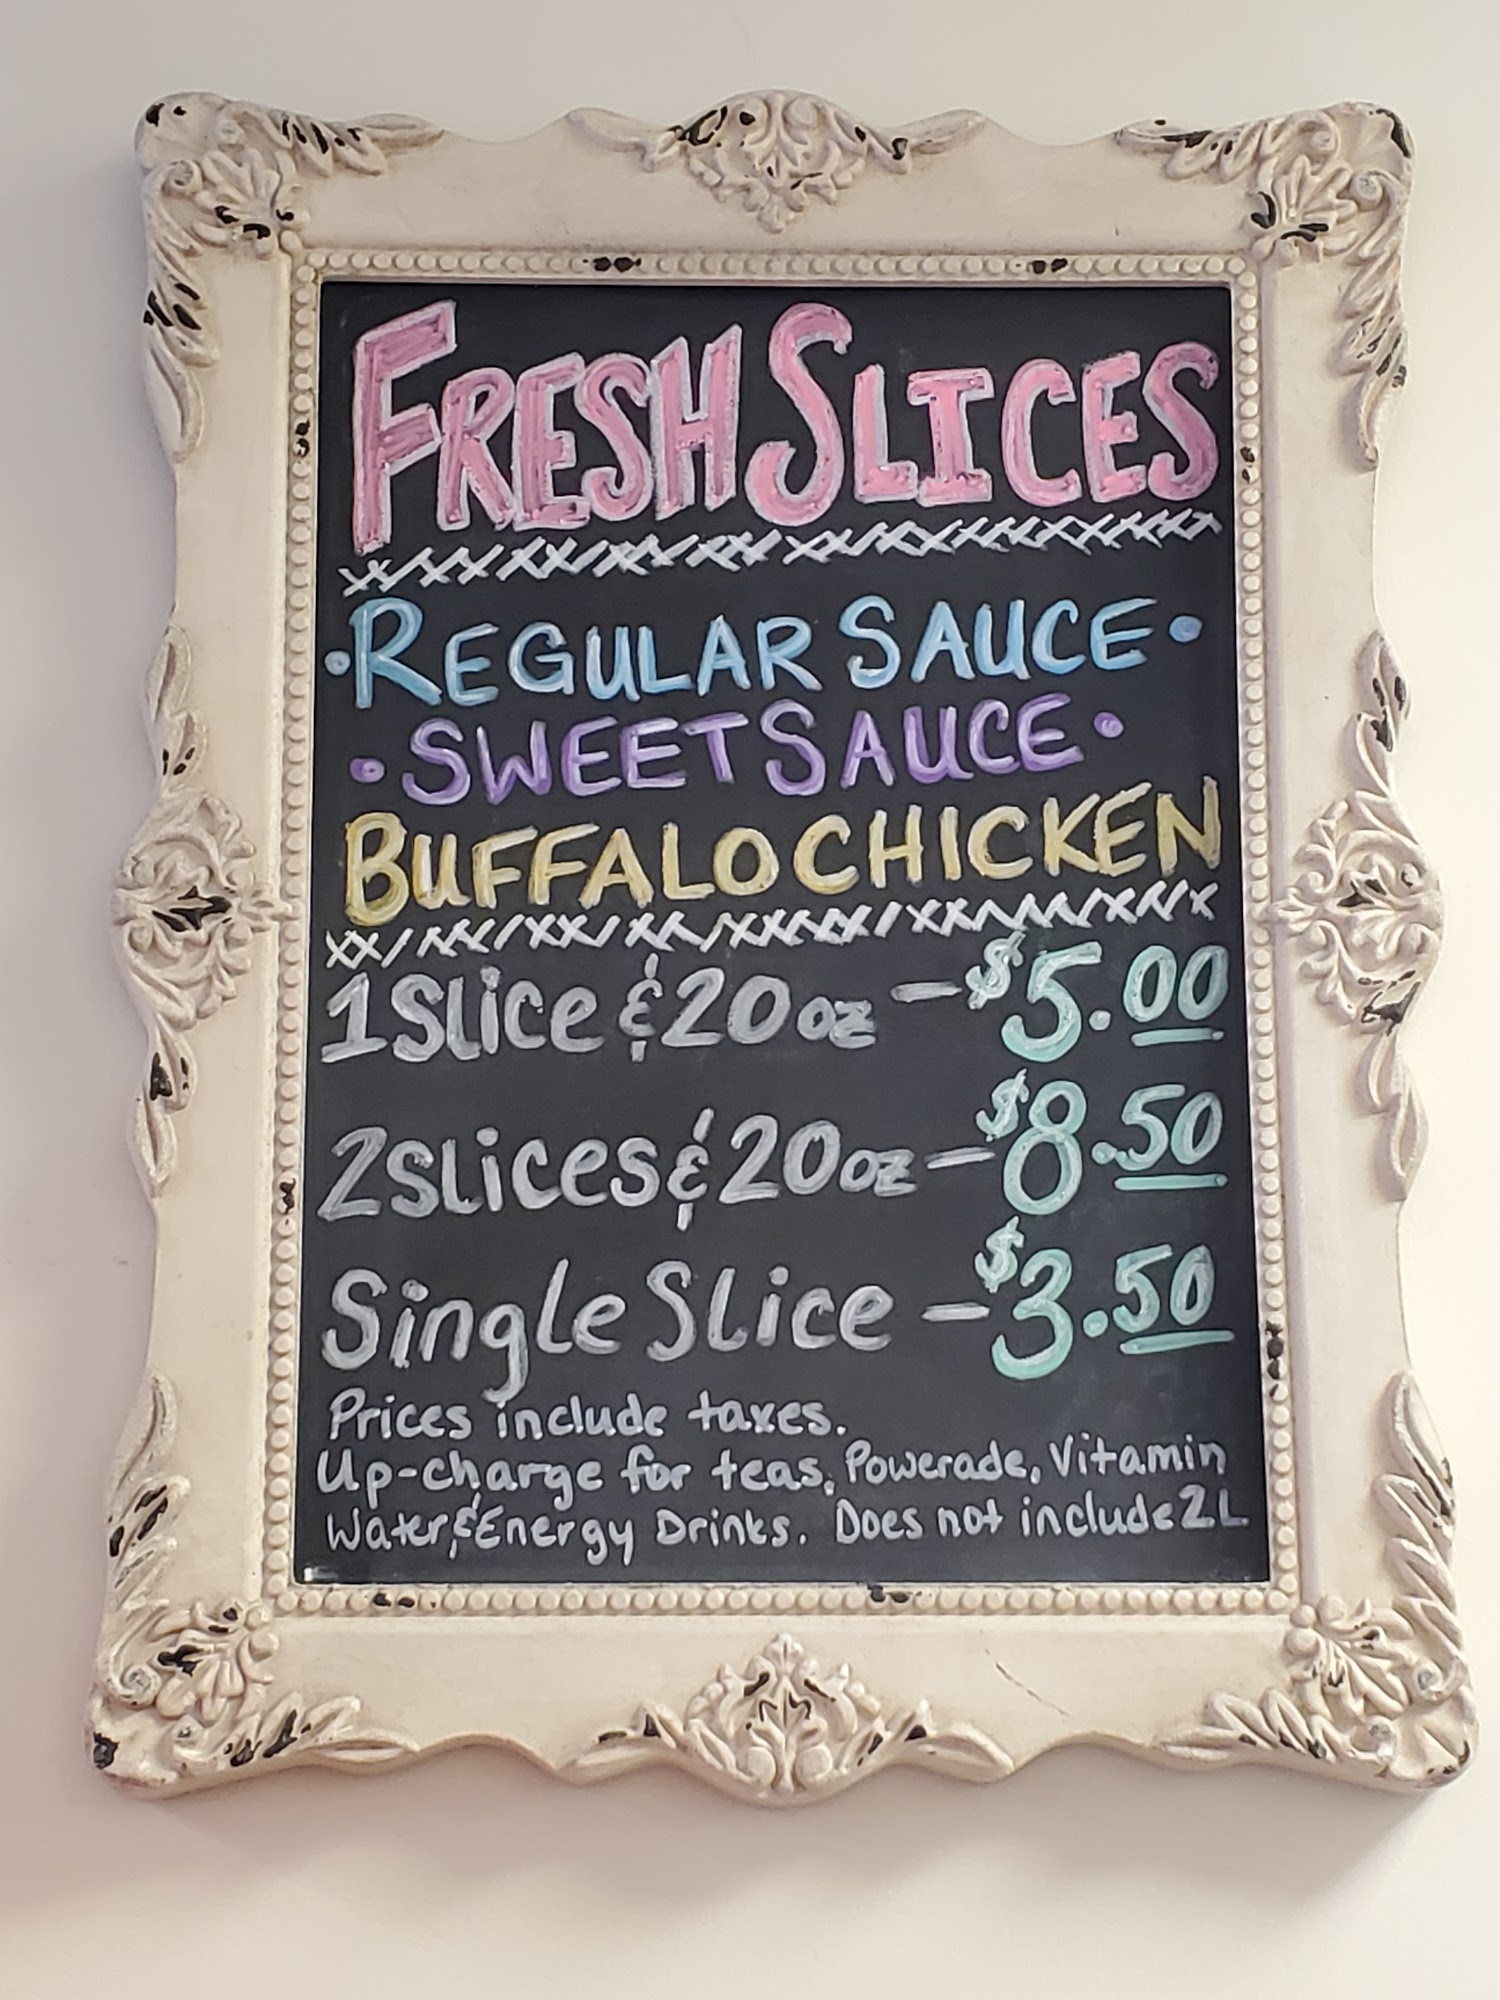 FRESH SLICES
• REGULAR SAUCE •
• SWEET SAUCE •
BUFFALO CHICKEN
1 Slice & 20 oz - $5.00
2 slices & 20 oz - $8.50
Single Slice - $3.50
Prices include taxes.
Up-charge for teas, Powerade, Vitamin
Water, & Energy Drinks. Does not include 2L